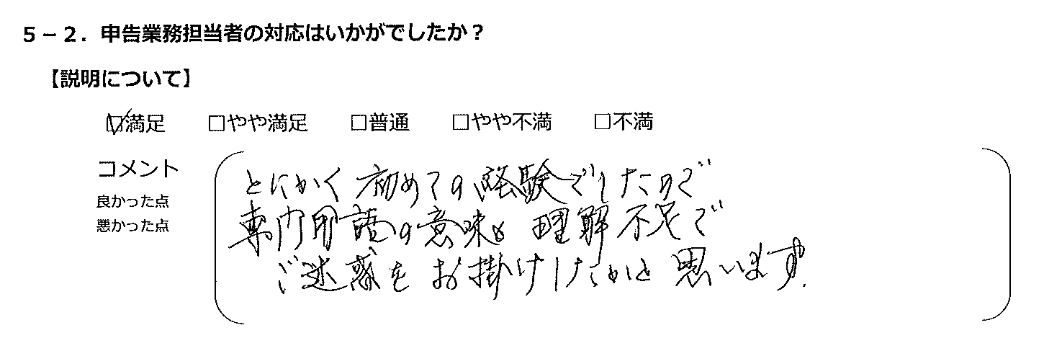 5－2．申告業務担当者の対応はいかがでしたか？
【説明について】
☑満足 □やや満足 □普通 □やや不満 □不満
コメント
良かった点
悪かった点
とにかく初めての経験でしたので
専門用語の意味も理解不足で
ご迷惑をお掛けしたかと思います.